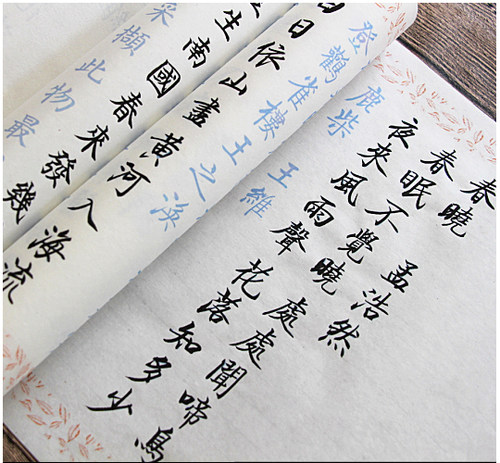 春曉 孟浩然
春眠不覺曉處處聞啼鳥
夜來風雨聲花落知多少
鹿柴 王維
登鸛雀樓 王之渙
白日依山盡黃河入海流
生南國春來發幾
采擷此物最